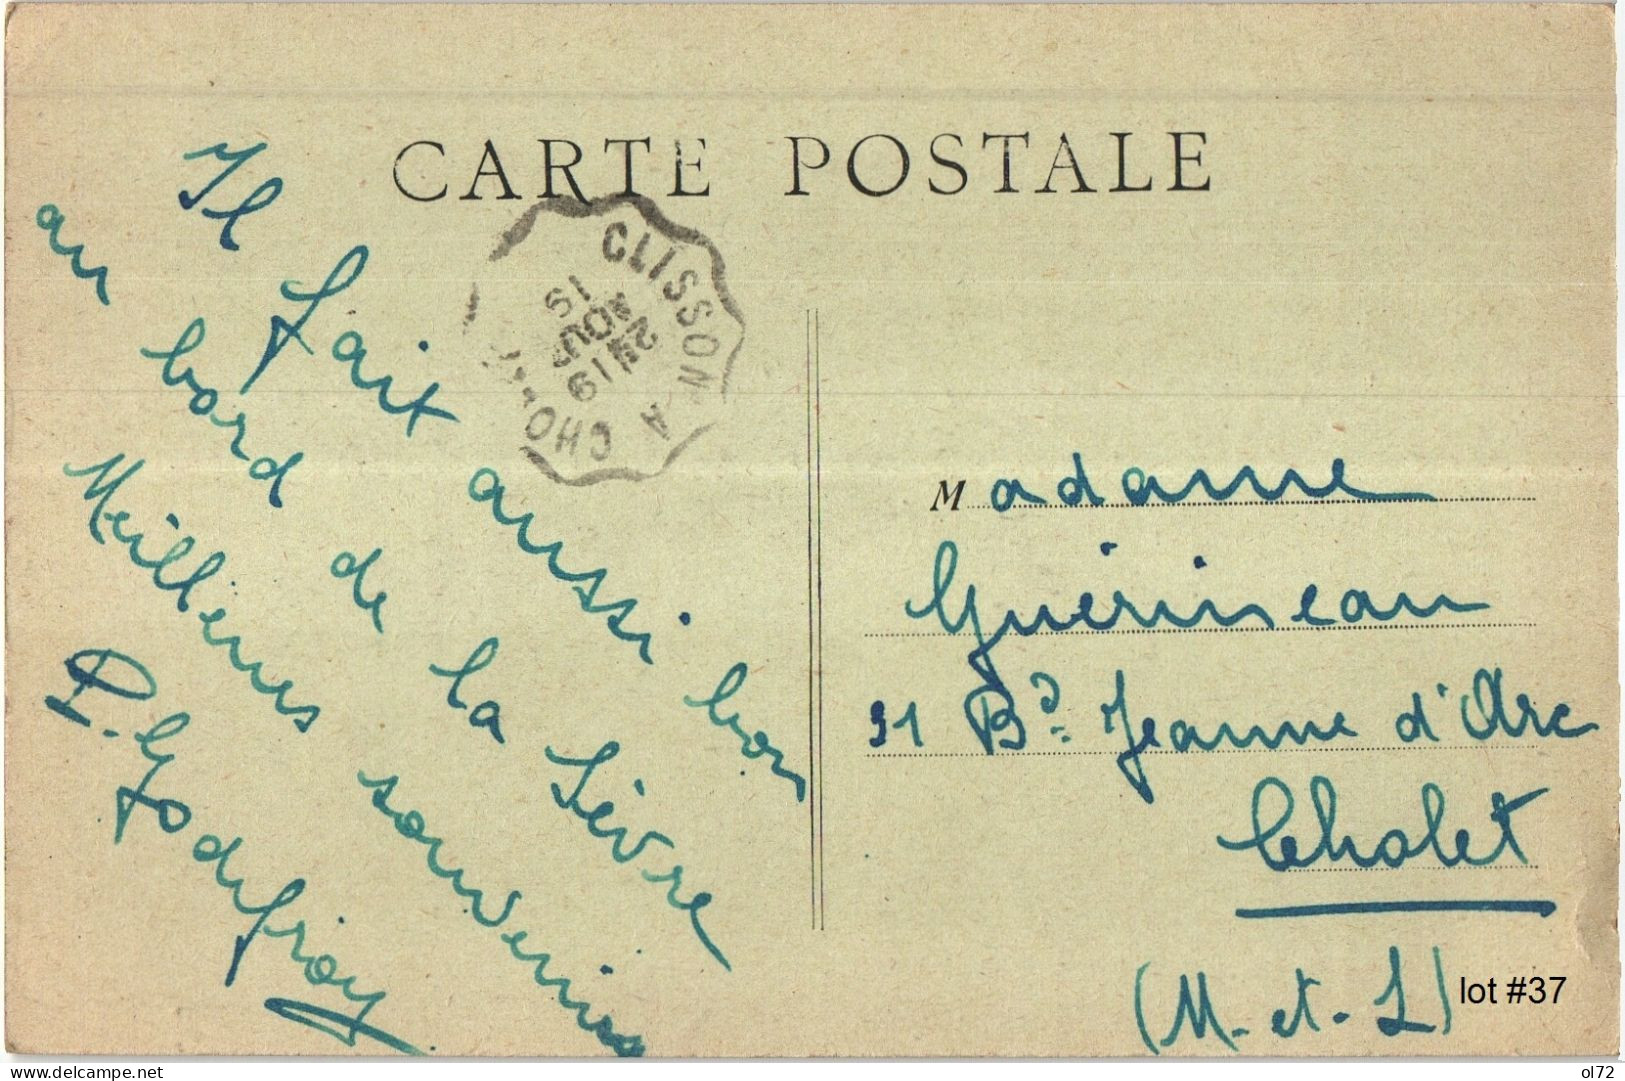 CARTE POSTALE
Il fait aussi bon
au bord de la Sèvre
Meilleurs souvenirs
P. Godefroy
CLISSON A CHO
19
AOU
19
Madame
Guérineau
91 Bd. Jeanne d'Arc
Cholet
(M-et-L)
lot #37
delcampe.net
ol72